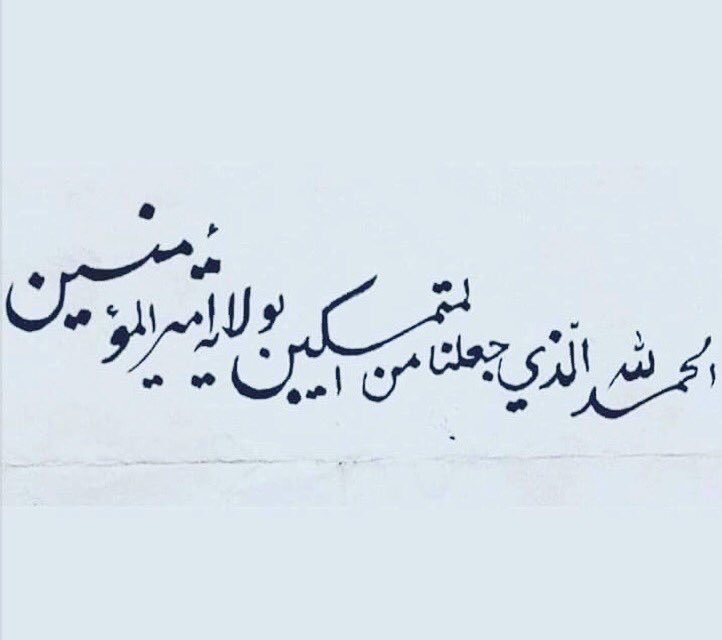 الحمد لله الّذي جعلنا من المتمسكين بولاية أمير المؤمنين